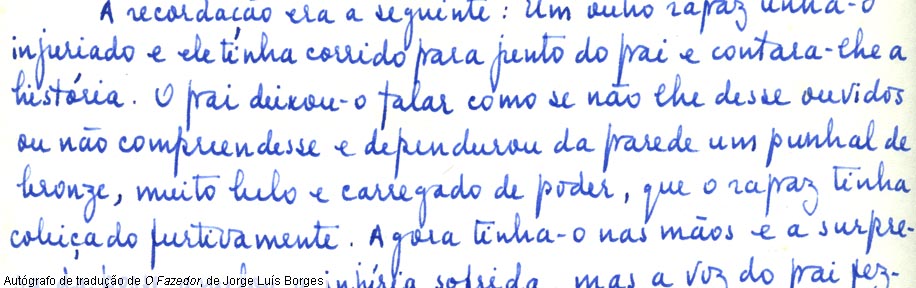 A recordação era a seguinte: Um outro rapaz tinha-o
injuriado e ele tinha corrido para junto do pai e contara-lhe a
história. O pai deixou-o falar como se não lhe desse ouvidos
ou não compreendesse e dependurou da parede um punhal de
bronze, muito belo e carregado de poder, que o rapaz tinha
cobiçado furtivamente. Agora tinha-o nas mãos e a surpre-
injúria sofrida, mas a voz do pai fez-
Autógrafo de tradução de O Fazedor, de Jorge Luís Borges